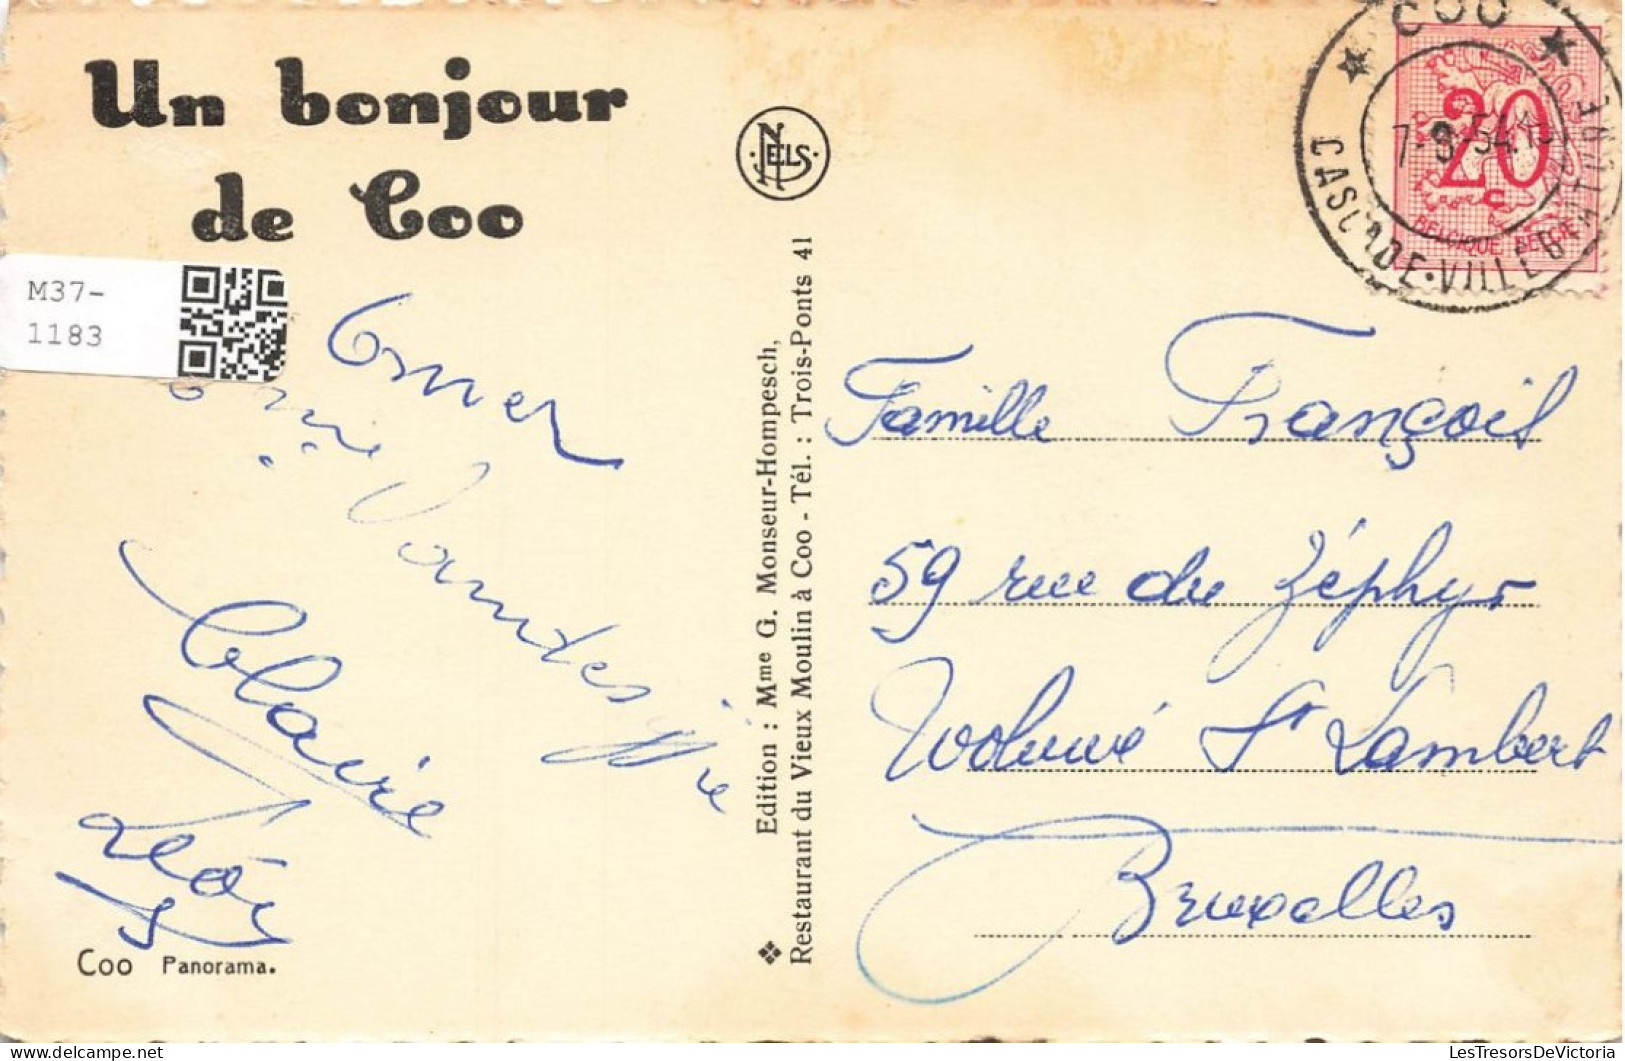 Un bonjour
de Coo
NELS
COO
7-8-54.1
20
c
BELGIQUE BELGIE
CASCADE-VILLEGIATURE
M37-
1183
Omer
Claire
Léon
Famille François
59 rue du Zéphyr
Woluwé St Lambert
Bruxelles
Edition : Mme G. Monseur-Hompesch,
Restaurant du Vieux Moulin à Coo - Tél. : Trois-Ponts 41
Coo Panorama.
LesTresorsDeVictoria